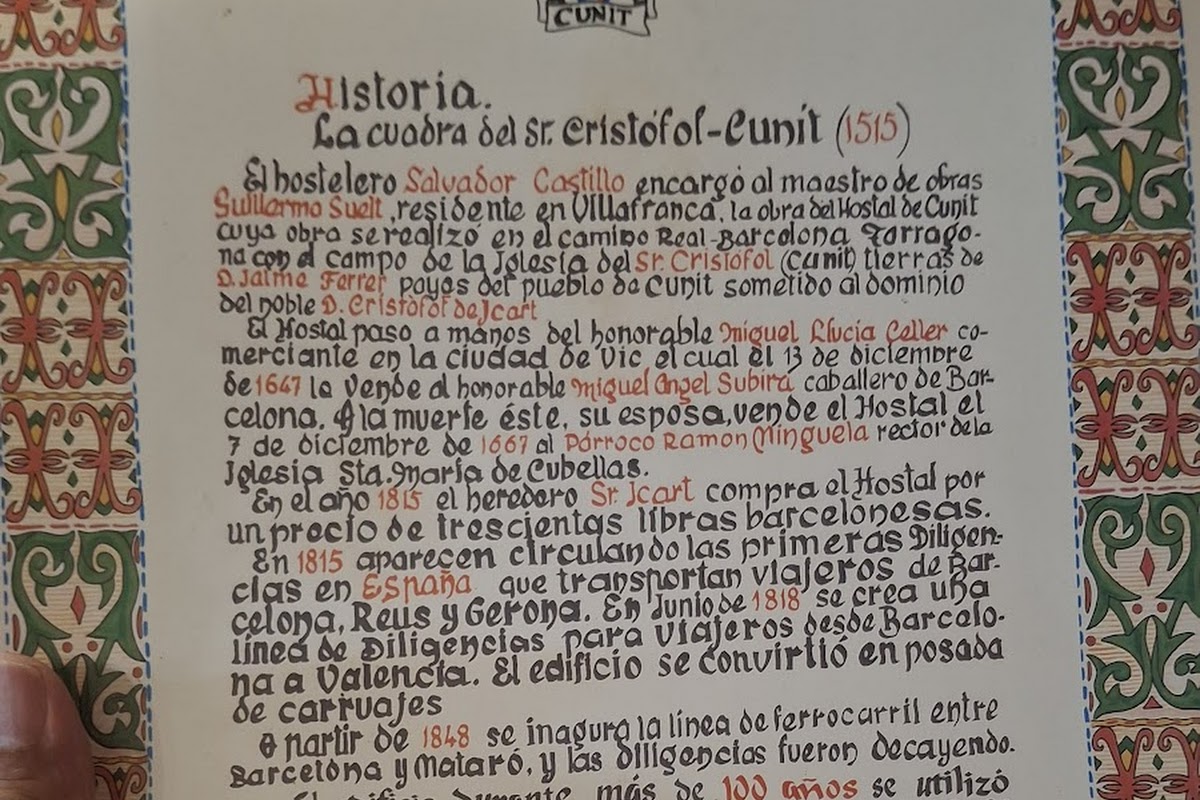 CUNIT
Historia.
La cuadra del Sr. Cristófol-Cunit (1515)
El hostelero Salvador Castillo encargó al maestro de obras
Guillermo Suelt, residente en Villafranca, la obra del Hostal de Cunit
cuya obra se realizó en el camino Real-Barcelona Tarrago-
na con el campo de la Jglesia del Sr. Cristofol (Cunit) tierras de
D. Jaime Ferrer payes del pueblo de Cunit sometido al dominio
del noble D. Cristofol de Jcart
El Hostal paso a manos del honorable Miguel Llucia Celler co-
merciante en la ciudad de Vic el cual el 13 de diciembre
de 1647 la vende al honorable Miguel Angel Subira caballero de Bar-
celona. A la muerte éste, su esposa, vende el Hostal el
7 de diciembre de 1667 al Párroco Ramon Minguela rector de la
Jglesia Sta. Maria de Cubellas.
En el año 1815 el heredero Sr. Jcart compra el Hostal por
un precio de trescientas libras barcelonesas.
En 1815 aparecen circulando las primeras Diligen-
cias en España que transportan viajeros de Bar-
celona, Reus y Gerona. En Junio de 1818 se crea una
línea de Diligencias para viajeros desde Barcelo-
na a Valencia. El edificio se convirtió en posada
de carruajes
A partir de 1848 se inagura la línea de ferrocarril entre
Barcelona y Mataró, y las diligencias fueron decayendo.
El edificio durante más de 100 años se utilizó